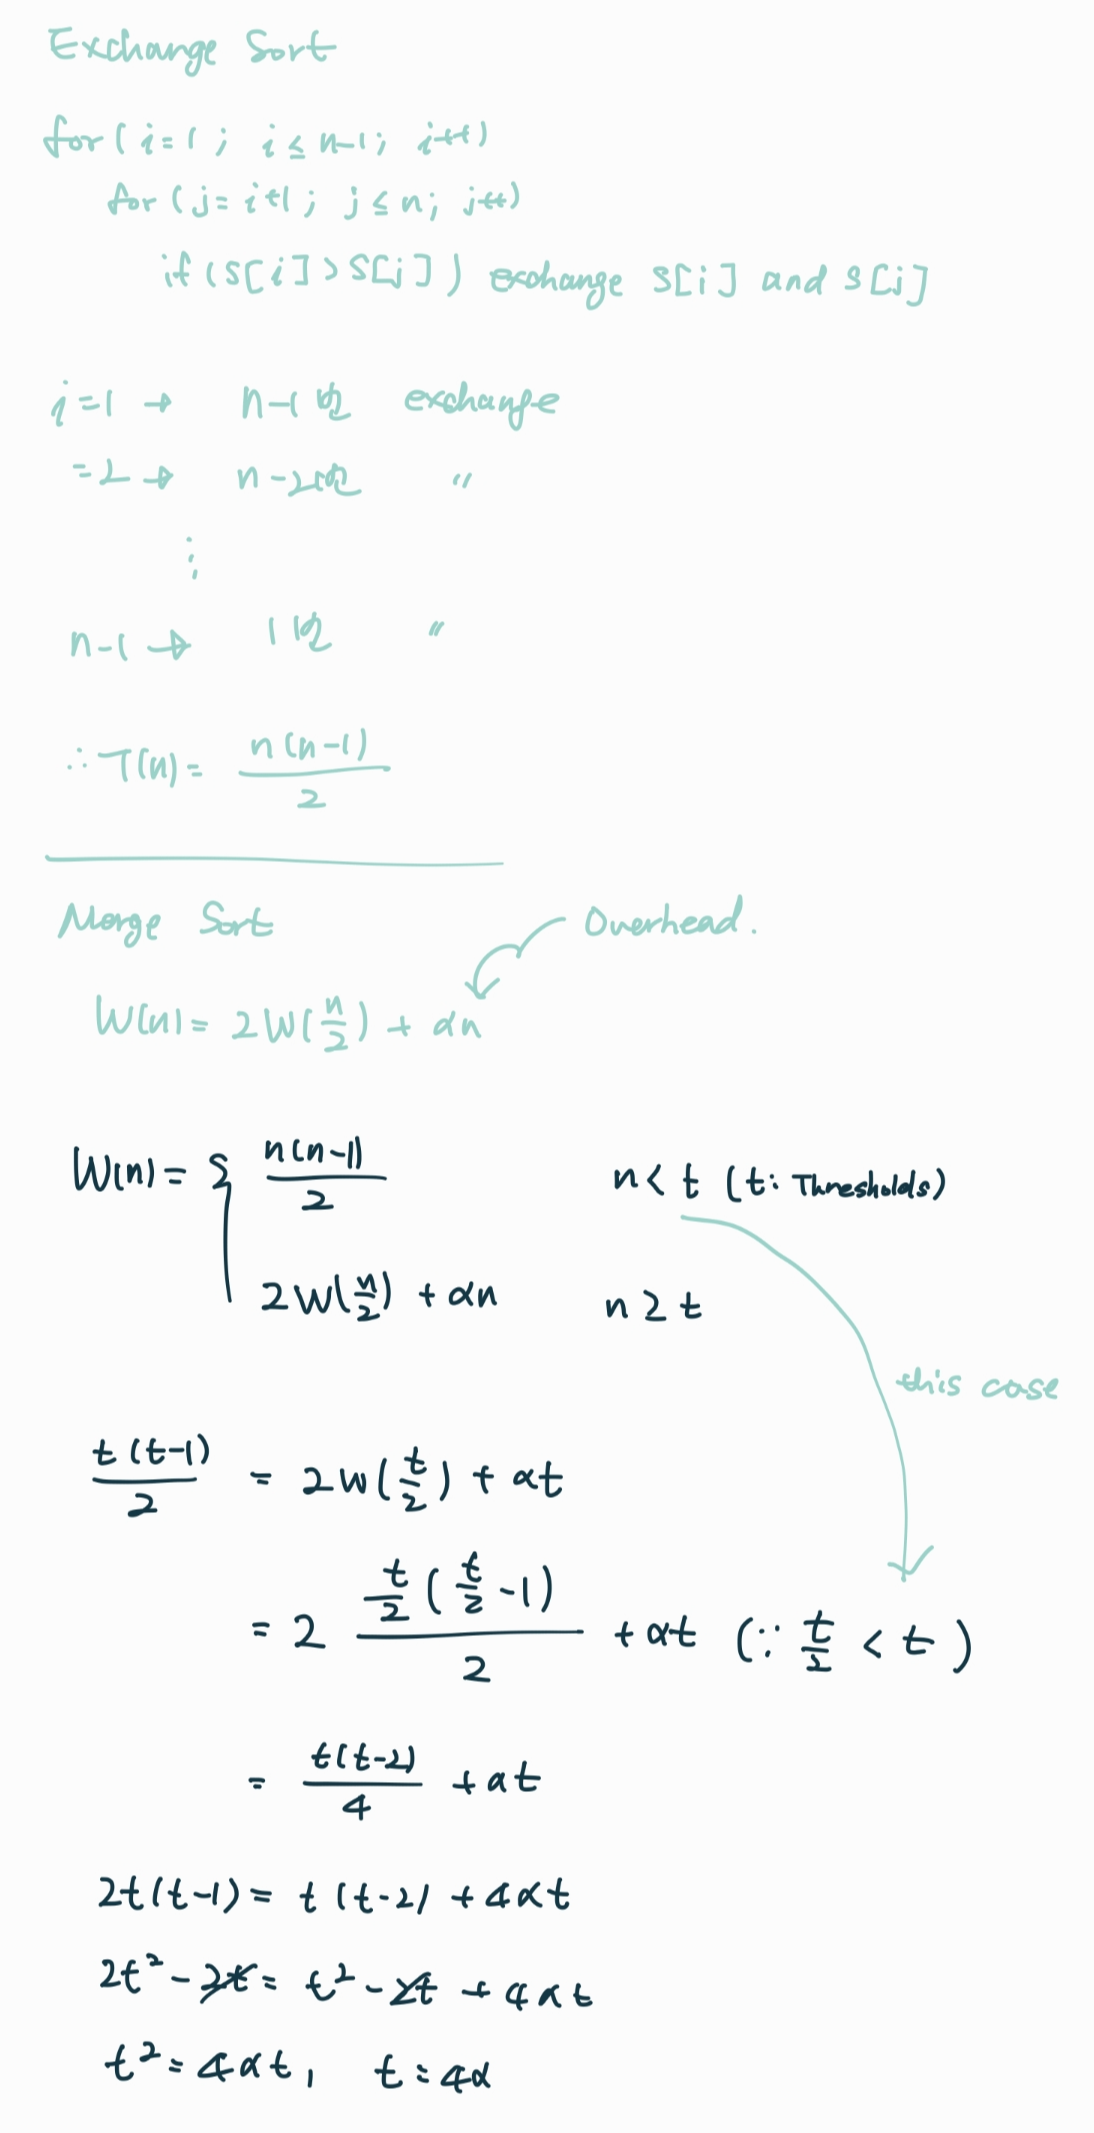 Exchange Sort
for ( i=1 ; i ≤ n-1 ; i++)
for ( j= i+1 ; j ≤ n ; j++)
if ( S[i] > S[j] ) exchange S[i] and S[j]
i=1 → n-1번 exchange
=2 → n-2번 〃
⋮
n-1 → 1번 〃
∴ T(n) = n(n-1)/2
Merge Sort
Overhead.
W(n) = 2W(n/2) + αn
W(n) = { n(n-1)/2 n < t (t: Thresholds)
2W(n/2) + αn n ≥ t
this case
t(t-1)/2 = 2W(t/2) + αt
= 2 t/2(t/2 -1)/2 + αt (∵ t/2 < t )
= t(t-2)/4 + αt
2t(t-1) = t(t-2) + 4αt
2t² - 2t = t² - 2t + 4αt
t² = 4αt, t = 4α